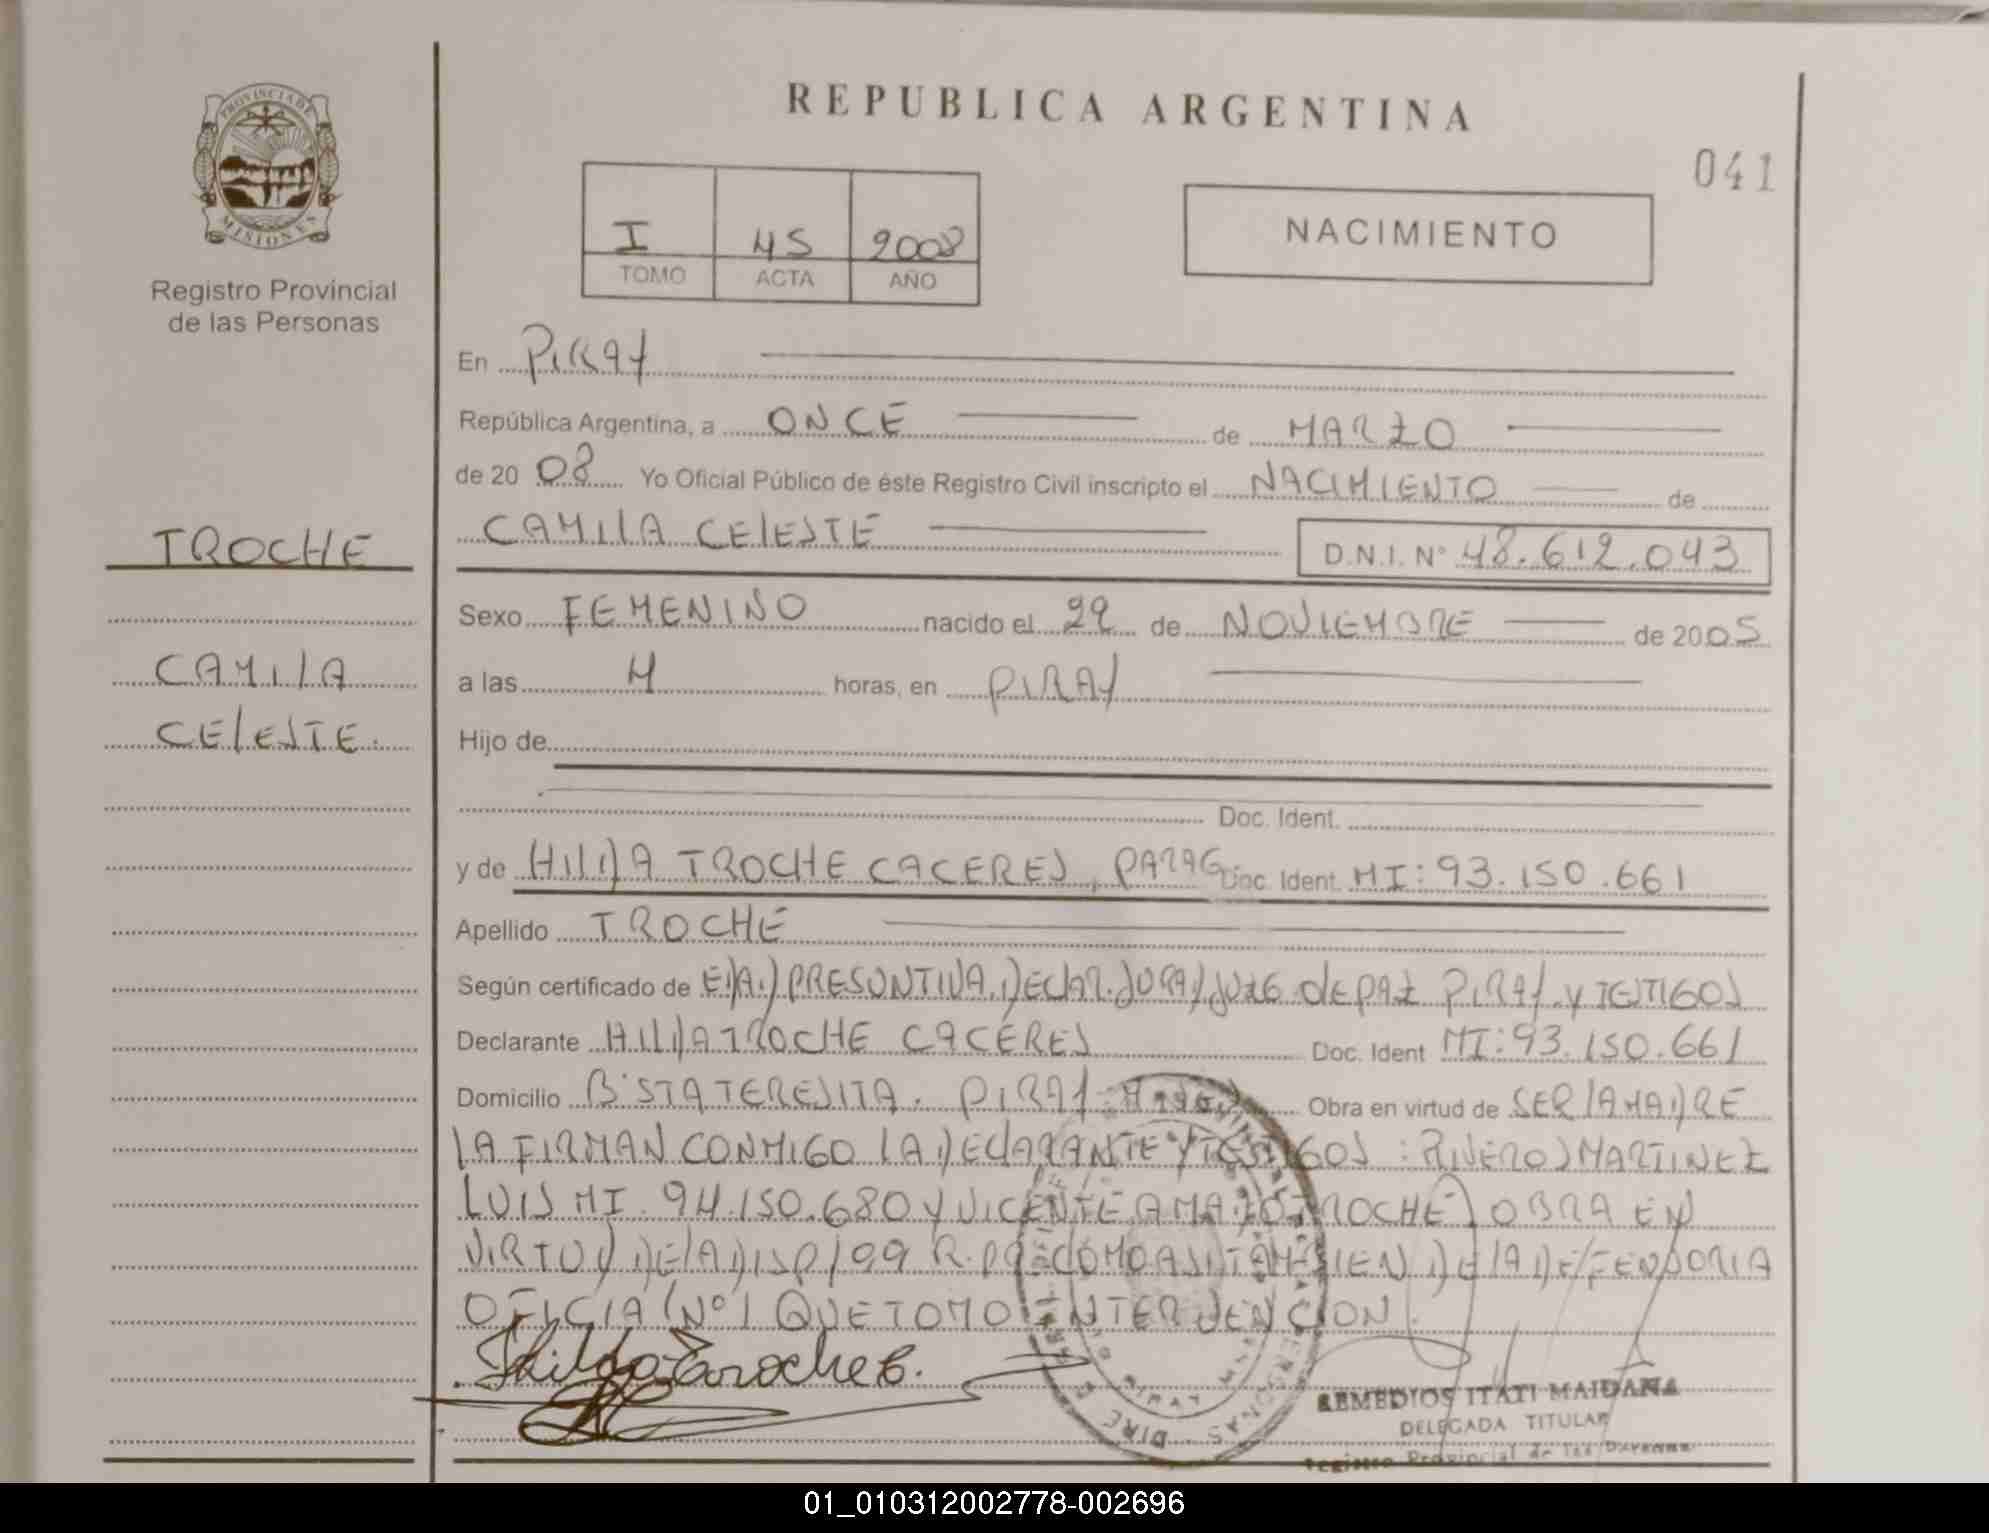 REPUBLICA ARGENTINA
041
PROVINCIA DE
MISIONES
Registro Provincial
de las Personas
I 45 2008
TOMO ACTA AÑO
NACIMIENTO
En PIRAY
República Argentina, a ONCE de MARZO
de 20 08 Yo Oficial Público de éste Registro Civil inscripto el NACIMIENTO de
CAMILA CELESTE D.N.I. Nº 48.612.043
TROCHE
CAMILA
CELESTE.
Sexo FEMENINO nacido el 22 de NOVIEMBRE de 2005
a las 4 horas, en PIRAY
Hijo de
Doc. Ident.
y de HILDA TROCHE CACERES, PARAG Doc. Ident. MI: 93.150.661
Apellido TROCHE
Según certificado de EDAD PRESUNTIVA, DECLAR. JURAD JUZG. de PAZ PIRAY. Y TESTIGOS
Declarante HILDA TROCHE CACERES Doc. Ident MI: 93.150.661
Domicilio Bº STA TERESITA. PIRAY Obra en virtud de SER LA MADRE
LA FIRMAN CONMIGO LA DECLARANTE Y TESTIGOS: RIVEROS MARTINEZ
LUIS MI. 94.150.680 Y VICENTE AMADO TROCHE) OBRA EN
VIRTUD DE LA DISP/99 R.P. COMO ASI TAMBIEN DE LA DEFENSORIA
OFICIAL Nº 1 QUE TOMO INTERVENCION.
Hilda Troche C.
REMEDIOS ITATI MAIDANA
DELEGADA TITULAR
Registro Provincial de las Personas
01_010312002778-002696